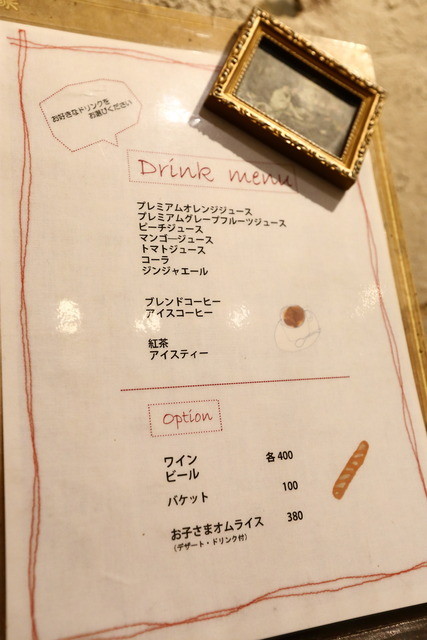 お好きなドリンクを
お選びください
Drink menu
プレミアムオレンジジュース
プレミアムグレープフルーツジュース
ピーチジュース
マンゴージュース
トマトジュース
コーラ
ジンジャエール
ブレンドコーヒー
アイスコーヒー
紅茶
アイスティー
Option
ワイン 各400
ビール
バケット 100
お子さまオムライス 380
(デザート・ドリンク付)